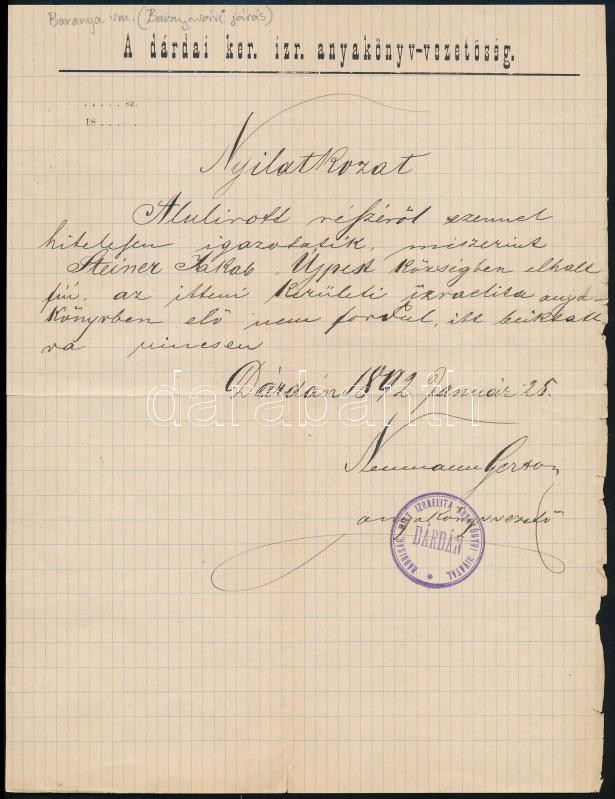 Baranya vm. (Baranyavári járás)
A dárdai ker. izr. anyakönyv-vezetőség.
......sz.
18......
Nyilatkozat
Alulirott részéről ezennel
hitelesen igazoltatik, miszerint
Steiner Jakab Ujpest községben elhalt
fiú, az itteni kerületi izraelita anya-
könyvben elő nem fordul, itt beiktat
va nincsen
Dárdán 1892 Január 25.
darabanth
Neumann Gerson
anyakönyvvezető
RABBISÁG MINT IZRAELITA ANYAKÖNYVI HIVATAL
DÁRDÁN